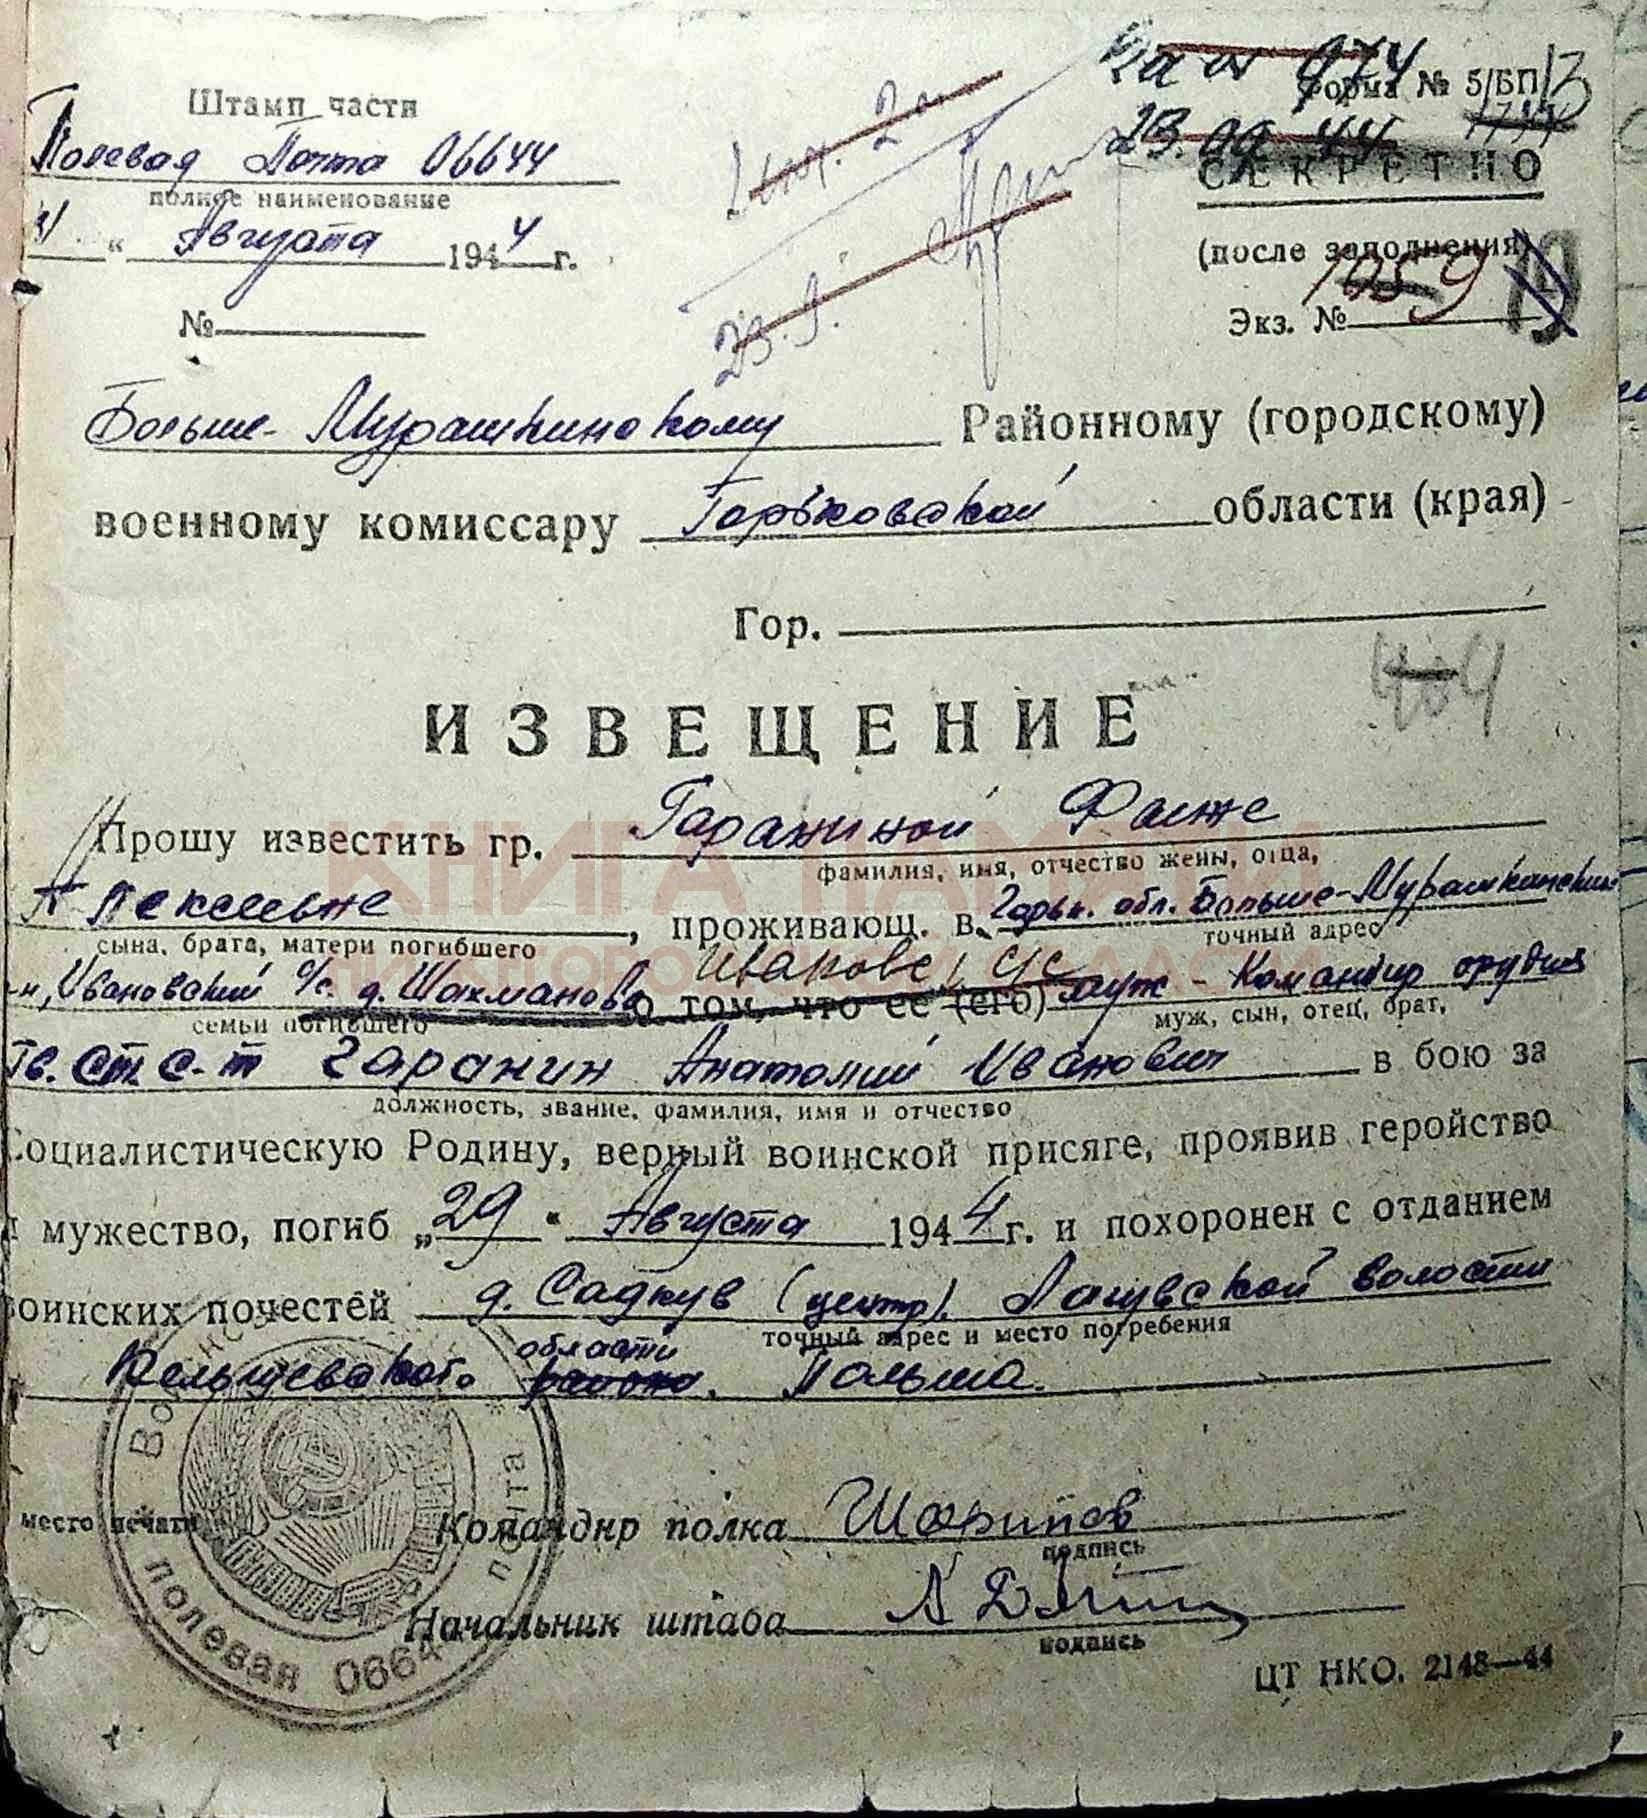 Форма № 5/БП
Штамп части
Полевая Почта 06644
полное наименование
23.09.44
СЕКРЕТНО
(после заполнения)
31 " Августа 1944 г.
23.9.
Экз. № 1059
№
Больше-Мурашкинскому Районному (городскому)
военному комиссару Горьковской области (края)
Гор.
ИЗВЕЩЕНИЕ
Прошу известить гр. Гараниной
фамилия, имя, отчество жены, отца,
Алексеевне, проживающ. в Горьк. обл. Больше-Мурашкинский
сына, брата, матери погибшего точный адрес
Ивановский с/с. д. Шахманово о том, что ее (его) муж - Командир орудия
семьи погибшего муж, сын, отец, брат,
Гв. ст. с-т Гаранин Анатолий Иванович в бою за
должность, звание, фамилия, имя и отчество
Социалистическую Родину, верный воинской присяге, проявив геройство
и мужество, погиб „29" Августа 1944 г. и похоронен с отданием
воинских почестей д. Садкув (центр)
точный адрес и место погребения
области
Кельцевского района. Польша.
место печати
Командир полка Шарипов
подпись
Начальник штаба
подпись
полевая почта 0664
ЦТ НКО. 2148—44
КНИГА ПАМЯТИ
НИЖЕГОРОДСКОЙ ОБЛАСТИ